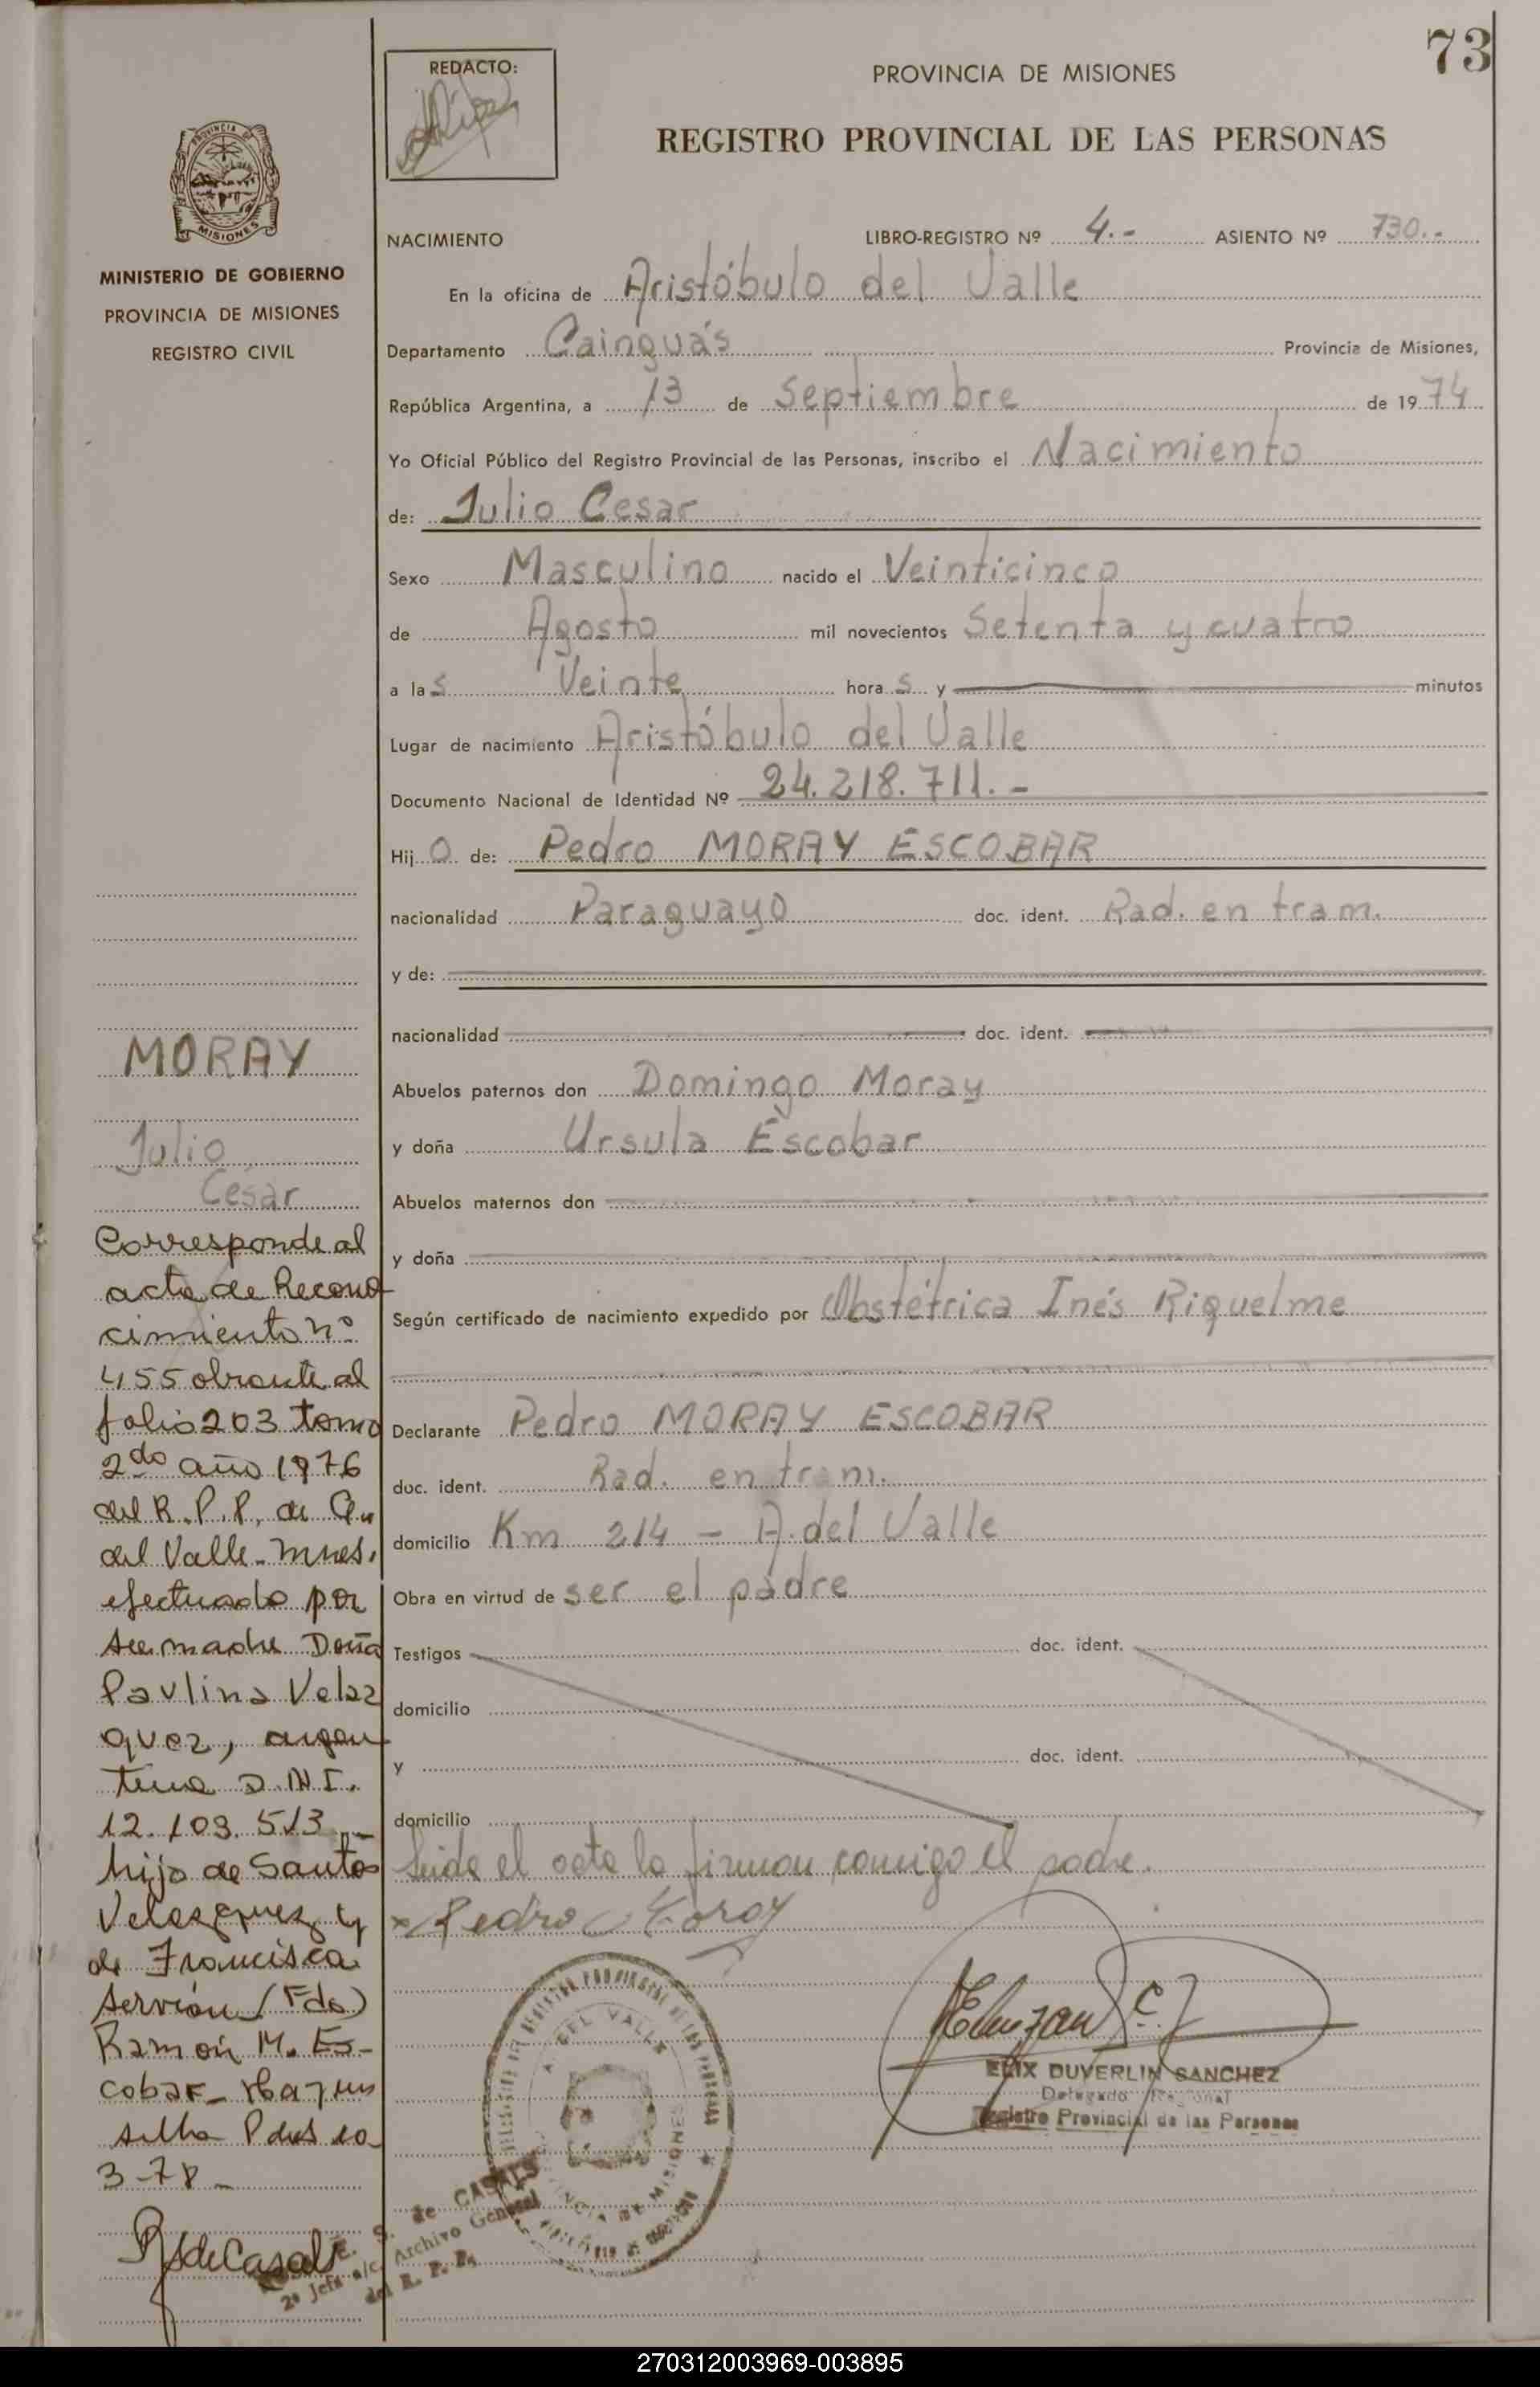 73
REDACTO:
PROVINCIA DE MISIONES
REGISTRO PROVINCIAL DE LAS PERSONAS
PROVINCIA DE
MISIONES
MINISTERIO DE GOBIERNO
PROVINCIA DE MISIONES
REGISTRO CIVIL
NACIMIENTO LIBRO-REGISTRO Nº 4.- ASIENTO Nº 730.-
En la oficina de Aristóbulo del Valle
Departamento Cainguás Provincia de Misiones,
República Argentina, a 13 de Septiembre de 1974
Yo Oficial Público del Registro Provincial de las Personas, inscribo el Nacimiento
de: Julio Cesar
Sexo Masculino nacido el Veinticinco
de Agosto mil novecientos Setenta y cuatro
a las Veinte horas y minutos
Lugar de nacimiento Aristóbulo del Valle
Documento Nacional de Identidad Nº 24.218.711.-
Hijo de: Pedro MORAY ESCOBAR
nacionalidad Paraguayo doc. ident. Rad. en tram.
y de:
nacionalidad doc. ident.
Abuelos paternos don Domingo Moray
y doña Ursula Escobar
Abuelos maternos don
y doña
Según certificado de nacimiento expedido por Obstétrica Inés Riquelme
Declarante Pedro MORAY ESCOBAR
doc. ident. Rad. en tram.
domicilio Km 214 - A. del Valle
Obra en virtud de ser el padre
Testigos doc. ident.
domicilio
y doc. ident.
domicilio
Leida el acta la firman comigo el padre.
x Pedro Moray
ELIX DUVERLIN SANCHEZ
Delegado Regional
Registro Provincial de las Personas
MORAY
Julio
César
Corresponde al
acta de Recono
cimiento nº
455 obrante al
folio 203 tomo
2do año 1976
del R.P.P. de A.
del Valle - Mnes.
efectuado por
su madre Doña
Paulina Velaz
quez, argen
tina D.N.I.
12.103.513 -
hijo de Santos
Velazquez y
de Francisca
Servián (Fdo)
Ramón M. Es-
cobar - Hay un
sello Pdas 10-
3-78 -
RSdeCasals
E. S. de CASALS
2º Jefe a/c. Archivo General
del R. P. P.
A. DEL VALLE
270312003969-003895